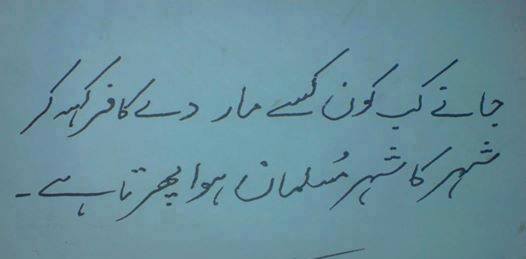 جانے کب کون کسے مار دے کافر کہہ کر
شہر کا شہر مُسلمان ہوا پھرتا ہے۔